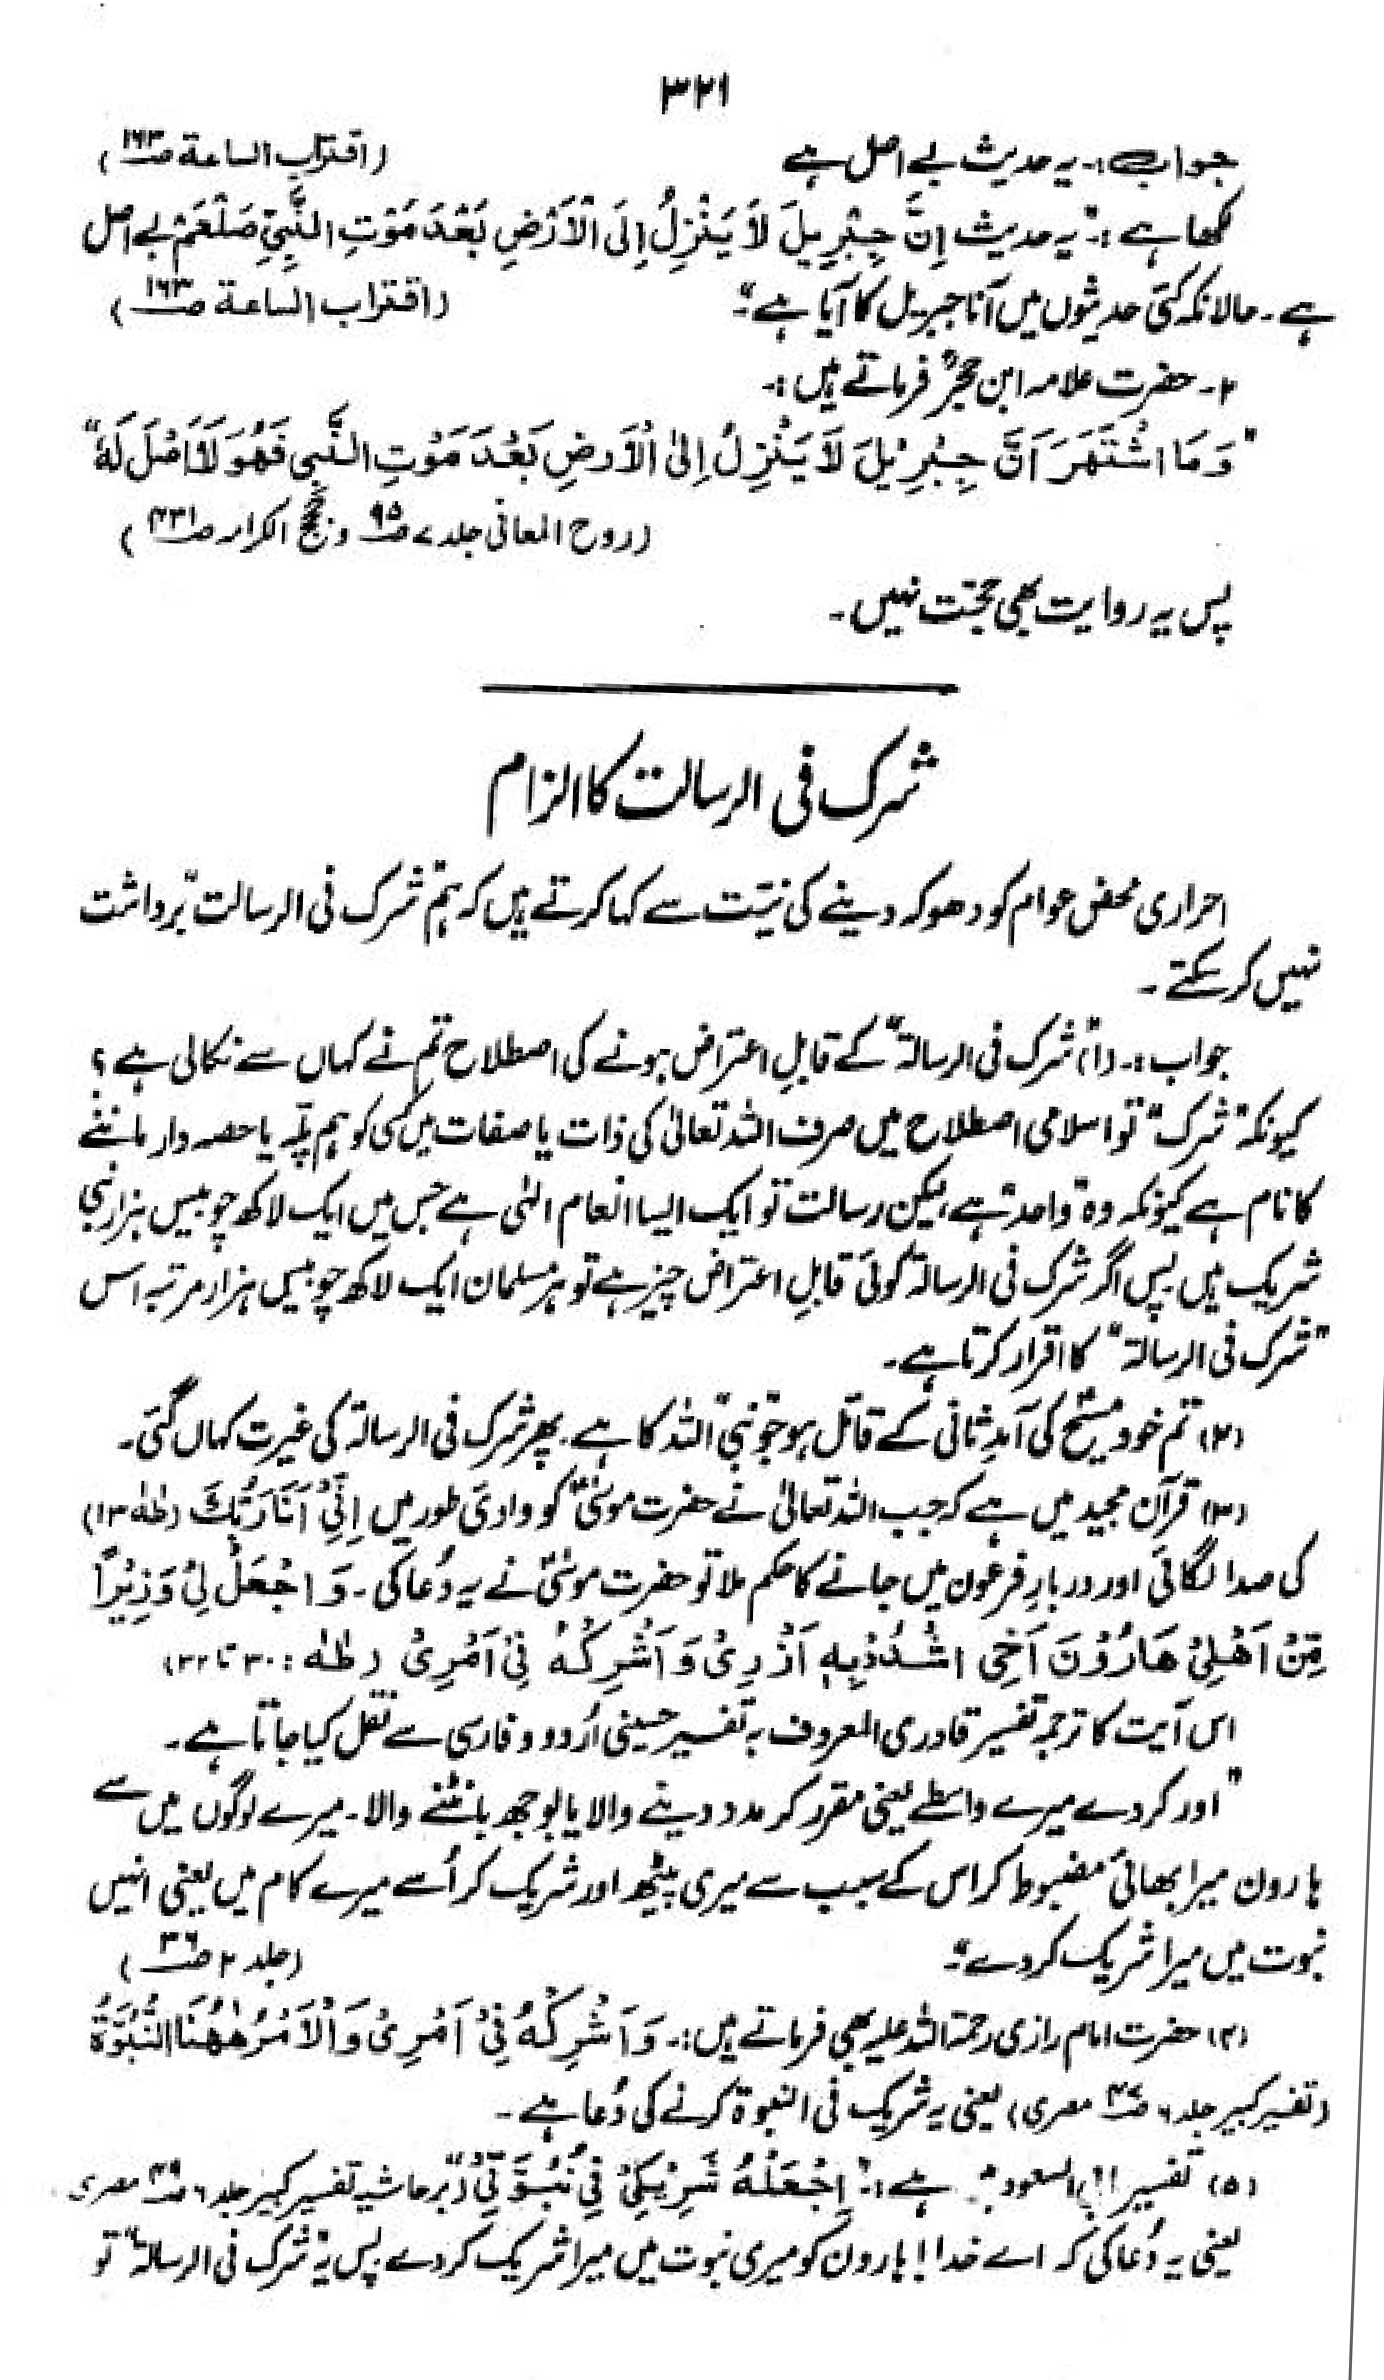 ۳۲۱
جواب:۔ یہ حدیث بے اصل ہے (اقتراب الساعة صـ۱۶۳)
لکھا ہے:۔ "یہ حدیث اِنَّ جِبْرِیلَ لَا یَنْزِلُ اِلَی الْاَرْضِ بَعْدَ مَوْتِ النَّبِیِّ صَلْعَمْ بے اصل
ہے۔ حالانکہ کئی حدیثوں میں آنا جبریل کا آیا ہے"۔ (اقتراب الساعة صـ۱۶۳)
۲۔ حضرت علامہ ابن حجرؒ فرماتے ہیں:۔
"وَمَا اشْتَهَرَ اَنَّ جِبْرِیْلَ لَا یَنْزِلُ اِلَی الْاَرْضِ بَعْدَ مَوْتِ النَّبِی فَهُوَ لَا اَصْلَ لَهٗ"
(روح المعانی جلد ۷ صـ۹۵ و حجج الکرامہ صـ۴۳۱)
پس یہ روایت بھی حجّت نہیں۔
شرک فی الرسالت کا الزام
احراری محض عوام کو دھوکہ دینے کی نیّت سے کہا کرتے ہیں کہ ہم "شرک فی الرسالت" برداشت
نہیں کر سکتے۔
جواب:۔ (۱) "شرک فی الرسالۃ" کے قابلِ اعتراض ہونے کی اصطلاح تم نے کہاں سے نکالی ہے؟
کیونکہ "شرک" تو اسلامی اصطلاح میں صرف اللہ تعالیٰ کی ذات یا صفات میں کسی کو ہم پلّہ یا حصہ دار ماننے
کا نام ہے کیونکہ وہ "واحد" ہے، لیکن رسالت تو ایک ایسا انعام الٰہی ہے جس میں ایک لاکھ چوبیس ہزار نبی
شریک ہیں۔ پس اگر شرک فی الرسالۃ کوئی قابلِ اعتراض چیز ہے تو ہر مسلمان ایک لاکھ چوبیس ہزار مرتبہ اس
"شرک فی الرسالۃ" کا اقرار کرتا ہے۔
(۲) تم خود مسیحؑ کی آمدِ ثانی کے قائل ہو جو "نبی" اللہ کا ہے۔ پھر شرک فی الرسالۃ کی غیرت کہاں گئی۔
(۳) قرآن مجید میں ہے کہ جب اللہ تعالیٰ نے حضرت موسٰیؑ کو وادی طور میں اِنِّیْ اَنَا رَبُّكَ (طٰہٰ ۱۳)
کی صدا لگائی اور دربارِ فرعون میں جانے کا حکم ملا تو حضرت موسٰیؑ نے یہ دُعا کی۔ وَاجْعَلْ لِیْ وَزِیْرًا
مِّنْ اَهْلِیْ هَارُوْنَ اَخِی اشْدُدْ بِهٖ اَزْرِیْ وَاَشْرِكْهُ فِیْ اَمْرِیْ (طٰہٰ: ۳۰ تا ۳۲)
اس آیت کا ترجمہ تفسیر قادری المعروف بہ تفسیر حسینی اُردو و فارسی سے نقل کیا جاتا ہے۔
"اور کر دے میرے واسطے یعنی مقرر کر مدد دینے والا یا بوجھ بانٹنے والا۔ میرے لوگوں میں سے
ہارون میرا بھائی مضبوط کر اس کے سبب سے میری پیٹھ اور شریک کر اُسے میرے کام میں یعنی انہیں
نبوت میں میرا شریک کر دے"۔ (جلد ۲ صـ۳۶)
(۴) حضرت امام رازی رحمۃ اللہ علیہ بھی فرماتے ہیں:۔ وَاَشْرِكْهُ فِیْ اَمْرِیْ وَالْاَمْرُ هٰهُنَا النُّبُوَّةُ
(تفسیر کبیر جلد ۶ صـ۴۷ مصری) یعنی یہ شریک فی النبوۃ کرنے کی دُعا ہے۔
(۵) تفسیر ابی السعود ہے:۔ "اِجْعَلْهُ شَرِیْكِیْ فِیْ نُبُوَّتِیْ" (برحاشیہ تفسیر کبیر جلد ۶ مصری
یعنی یہ دُعا کی کہ اے خدا! ہارون کو میری نبوت میں میرا شریک کر دے۔ پس یہ "شرک فی الرسالۃ" تو